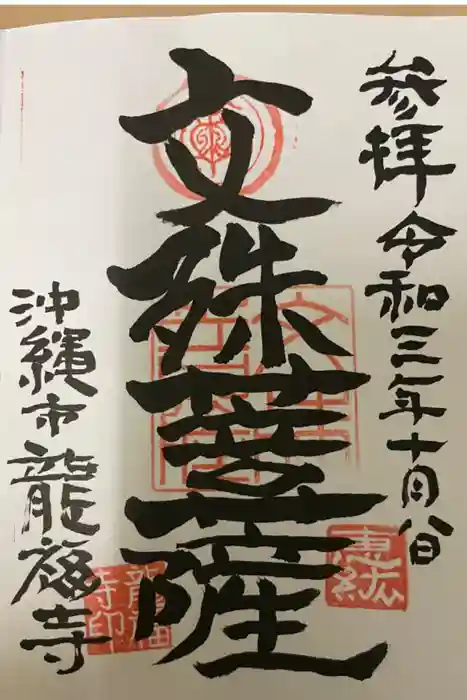 参拝令和三年十月八日
文殊菩薩
沖縄市龍福寺
龍福
寺印